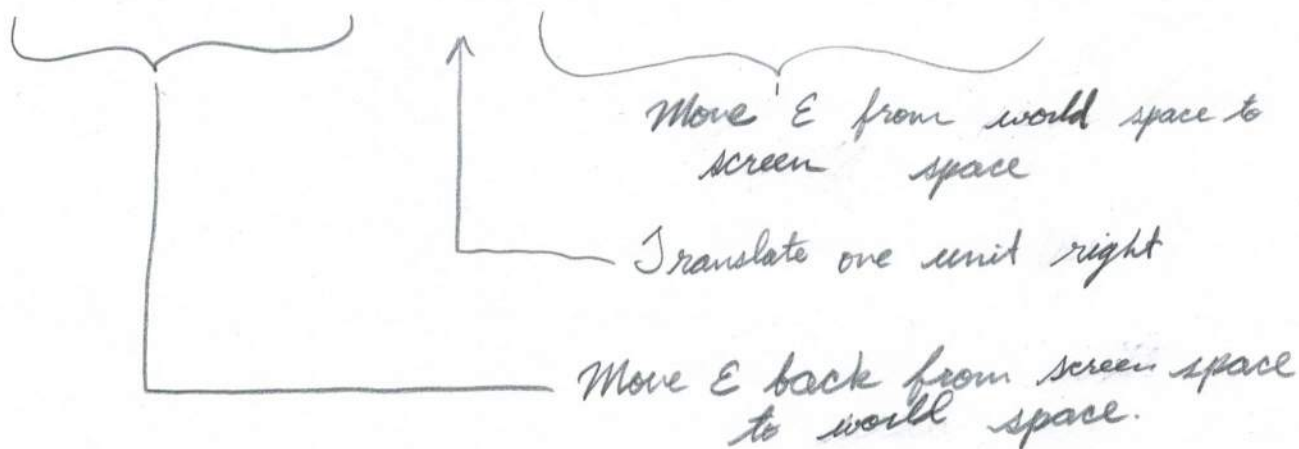 Move E from world space to
screen space
Translate one unit right
Move E back from screen space
to world space.